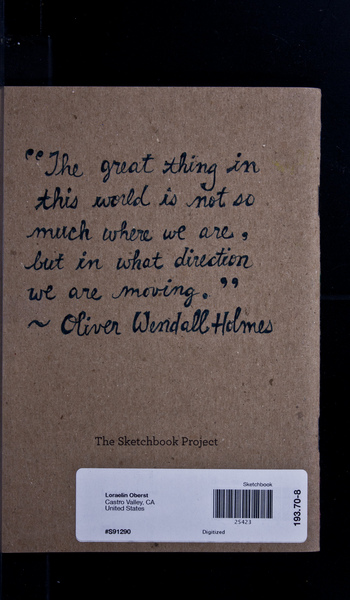 “The great thing in
this world is not so
much where we are,
but in what direction
we are moving.”
~ Oliver Wendall Holmes
The Sketchbook Project
Sketchbook
Loraelin Oberst
Castro Valley, CA
United States
25423
#S91290
Digitized
193.70-8